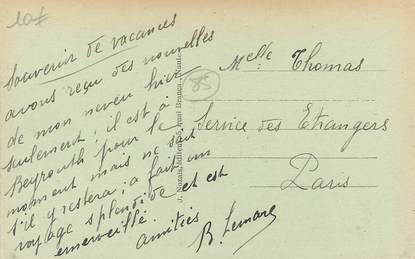 10f
Souvenir de vacances
avons reçu des nouvelles
de mon neveu hier
seulement ; il est à
Beyrouth pour le
moment mais ne sait
s'il y restera ; a fait un
voyage splendide et est
emerveillé.
amitiés
B. Lemare
Melle Thomas
Service des Etrangers
Paris
J. Nozais, éditeur, Nantes